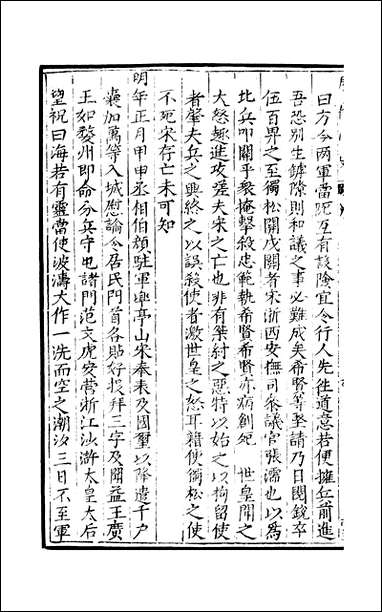 曰方今兩軍當阨互有設險宜令行人先往道意若便擁兵前進
吾恐別生罅隙則和議之事必難成矣希賢等堅請乃曰閱銳卒
伍百畀之至獨松關戍關者宋浙西安撫司叅議官張濡也以為
北兵叩關乎衆掩擊殺忠範執希賢希賢亦病創死 世皇聞之
大怒趣進攻嗟夫宋之亡也非有桀紂之惡特以始之以拘留使
者肇夫兵之興終之以誤殺使者激世皇之怒耳籍使獨松之使
不死宋存亡未可知
明年正月甲申丞相伯顏駐軍臯亭山宋奉表及國璽以降遣千戶
囊加䓕等入城慰諭令居民門首各貼好投拜三字及聞益王廣
王如婺州即命分兵守屯諸門范文虎安營浙江沙滸太皇太后
望祝曰海若有靈當使波濤大作一洗而空之潮汐三日不至軍